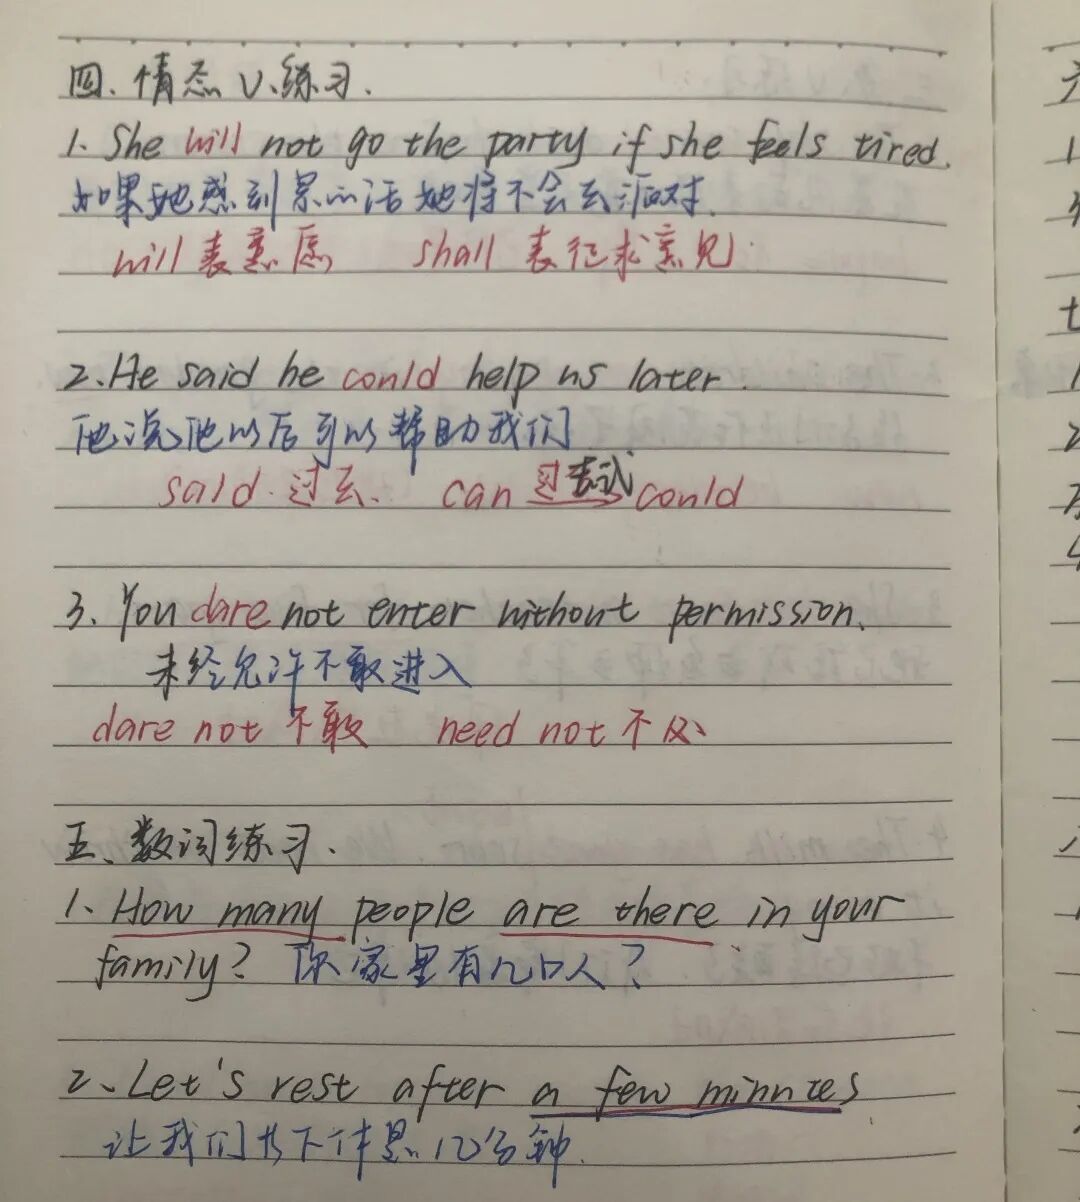 四、情态V.练习.
1. She will not go the party if she feels tired.
如果她感到累的话她将不会去派对.
will 表意愿 shall 表征求意见.
2. He said he could help us later.
他说他以后可以帮助我们
said 过去. can 过去式 could
3. You dare not enter without permission.
未经允许不敢进入
dare not 不敢 need not 不必
五、数词练习.
1、How many people are there in your
family? 你家里有几口人?
2、Let's rest after a few minutes
让我们 下休息几分钟.